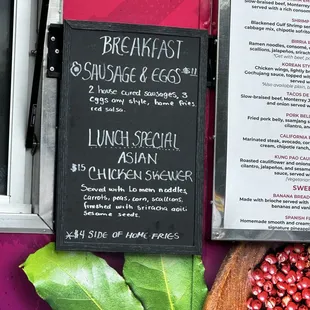 BREAKFAST
SAUSAGE & EGGS $11
2 house cured sausages, 3
eggs any style, home fries
red salsa.
LUNCH SPECIAL
ASIAN
$15 CHICKEN SKEWER
Served with Lo mein noodles
carrots, peas, corn, scallions
finished with sriracha aoili
sesame seeds.
$4 SIDE OF HOME FRIES
Slow-braised beef, Monterey
and onion
served in a rich
SHRIMP
Blackened Gulf Shrimp
cabbage mix, chipotle
BIRRIA
Ramen noodles, consome,
"Get beef, po
KOREAN
Chicken wings, lightly b
Gochujang sauce, topped
served wi
TACOS DE
Slow-braised beef, Monterey
and onion
PORK BEL
Fried pork belly, campech
cilantro, an
CALIFORNIA
Marinated steak, avocado, corn
cream, chipotle ranch,
KUNG PAO CAU
Roasted cauliflower and onions
cilantro, jalapeno, and sesame
sauce, served
(Vegetarian
SWE
BANANA BREAD
Made with brioche served with
bananas and van
SPANISH F
Homemade smooth and creamy
signature caramel